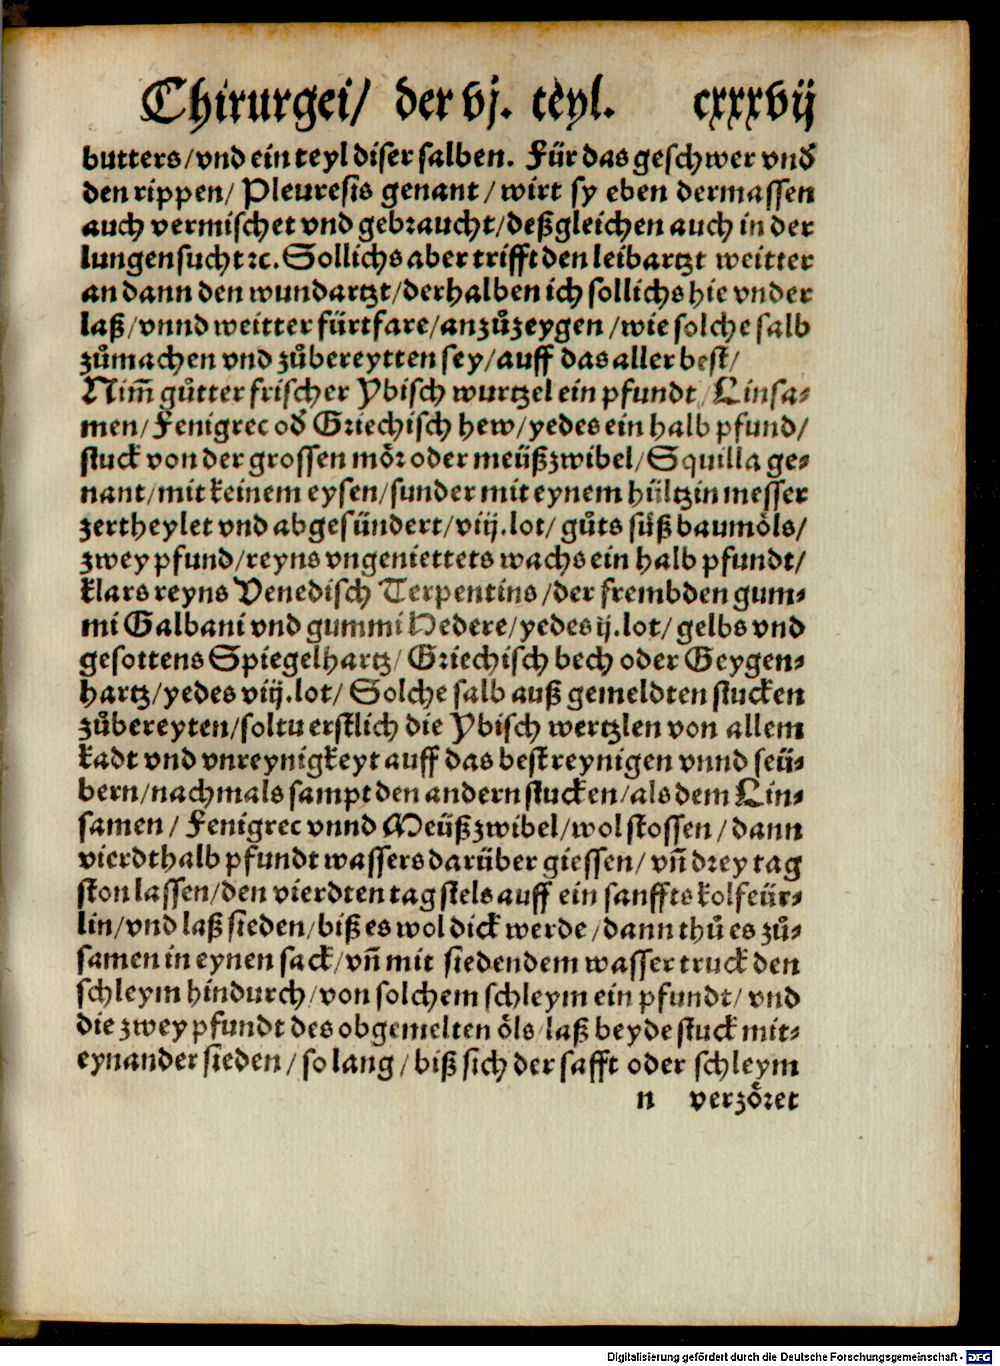 Chirurgei/ der vj. teyl. cxxxvij
butters/vnd ein teyl diser salben. Für das geschwer vnd
den rippen/ Pleuresis genant/wirt sy eben dermassen
auch vermischet vnd gebraucht/deßgleichen auch in der
lungensucht ꝛc. Sollichs aber trifft den leibartzt weitter
an dann den wundartzt/derhalben ich sollichs hie vnder
laß/vnnd weitter fürtfare/anzůzeygen/wie solche salb
zůmachen vnd zůbereytten sey/auff das aller best/
Nim̃ gůtter frischer Ybisch wurtzel ein pfundt/Linsa⸗
men/Fenigrec oď Griechisch hew/yedes ein halb pfund/
stuck von der grossen moͤr oder meüßzwibel/Squilla ge⸗
nant/mit keinem eysen/sunder mit eynem hültzin messer
zertheylet vnd abgesündert/viij.lot/gůts süß baumoͤls/
zwey pfund/reyns vngeniettets wachs ein halb pfundt/
klars reyns Venedisch Terpentins/der frembden gum⸗
mi Galbani vnd gummi Hedere/yedes ij.lot/gelbs vnd
gesottens Spiegelhartz/Griechisch bech oder Geygen⸗
hartz/yedes viij.lot/ Solche salb auß gemeldten stucken
zůbereyten/soltu erstlich die Ybisch wertzlen von allem
kadt vnd vnreynigkeyt auff das best reynigen vnnd seü⸗
bern/nachmals sampt den andern stucken/als dem Lin⸗
samen/ Fenigrec vnnd Meüßzwibel/wol stossen/dann
vierdthalb pfundt wassers darüber giessen/vñ drey tag
ston lassen/den vierdten tag stels auff ein sanffts kolfeür⸗
lin/vnd laß sieden/biß es wol dick werde/dann thů es zů⸗
samen in eynen sack/vñ mit siedendem wasser truck den
schleym hindurch/von solchem schleym ein pfundt/vnd
die zwey pfundt des obgemelten oͤls/laß beyde stuck mit⸗
eynander sieden/so lang/biß sich der safft oder schleym
n verzoͤret
Digitalisierung gefördert durch die Deutsche Forschungsgemeinschaft - DFG